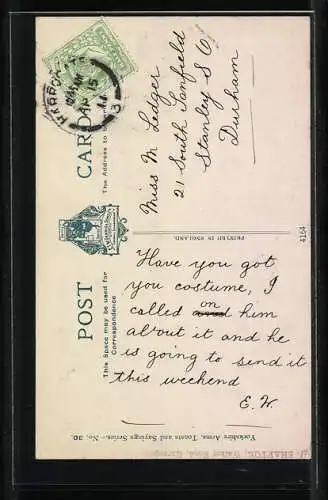 POST CARD
This Space may be used for
Correspondence
The Address to
PRINTED IN ENGLAND.
4164
Miss M Ledger
21 South Tanfield
Stanley S O
Durham
Have you got
you costume, I
called on him
about it and he
is going to send it
this weekend
E. W.
Yorkshire Arms, Toasts and Sayings Series.—No. 30.